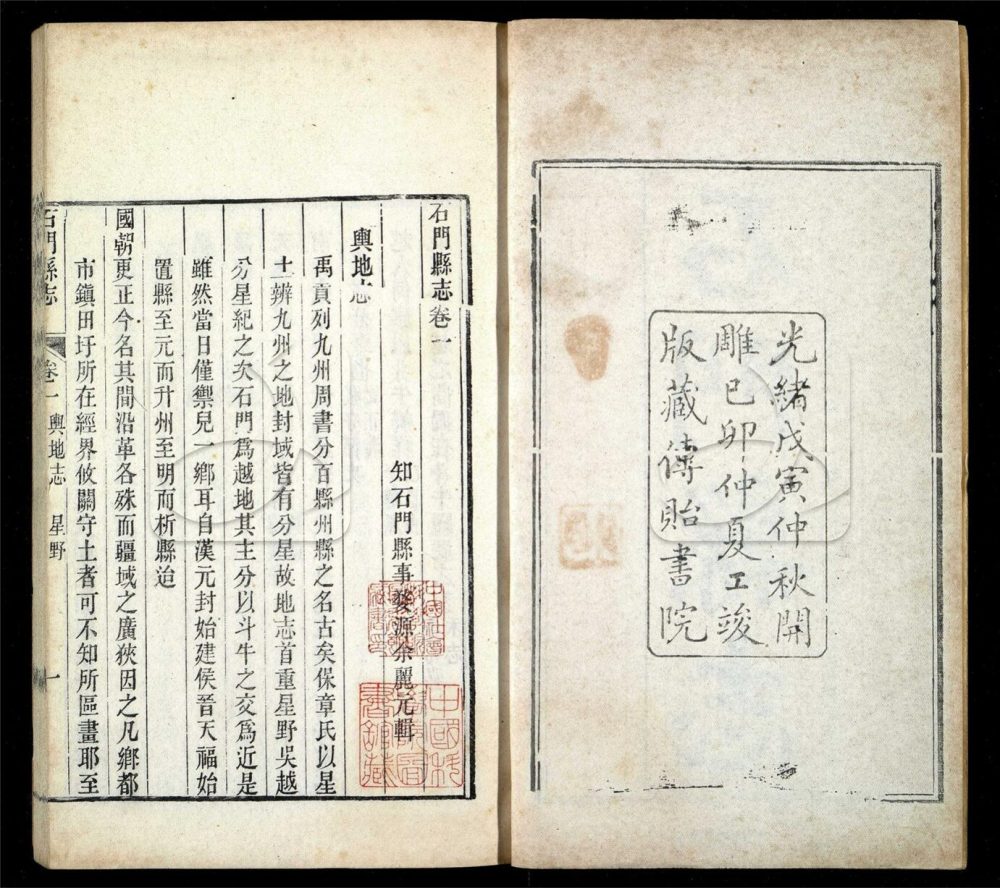 光緒戊寅仲秋開
雕已卯仲夏工竣
版藏傳貽書院
石門縣志卷一
知石門縣事婺源余麗元輯
輿地志
禹貢列九州周書分百縣州縣之名古矣保章氏以星
土辨九州之地封域皆有分星故地志首重星野吳越
分星紀之次石門為越地其主分以斗牛之交為近是
雖然當日僅禦兒一鄉耳自漢元封始建侯晉天福始
置縣至元而升州至明而析縣迨
國朝更正今名其間沿革各殊而疆域之廣狹因之凡鄉都
市鎮田圩所在經界攸關守土者可不知所區畫耶至
石門縣志 卷一 輿地志 星野 一